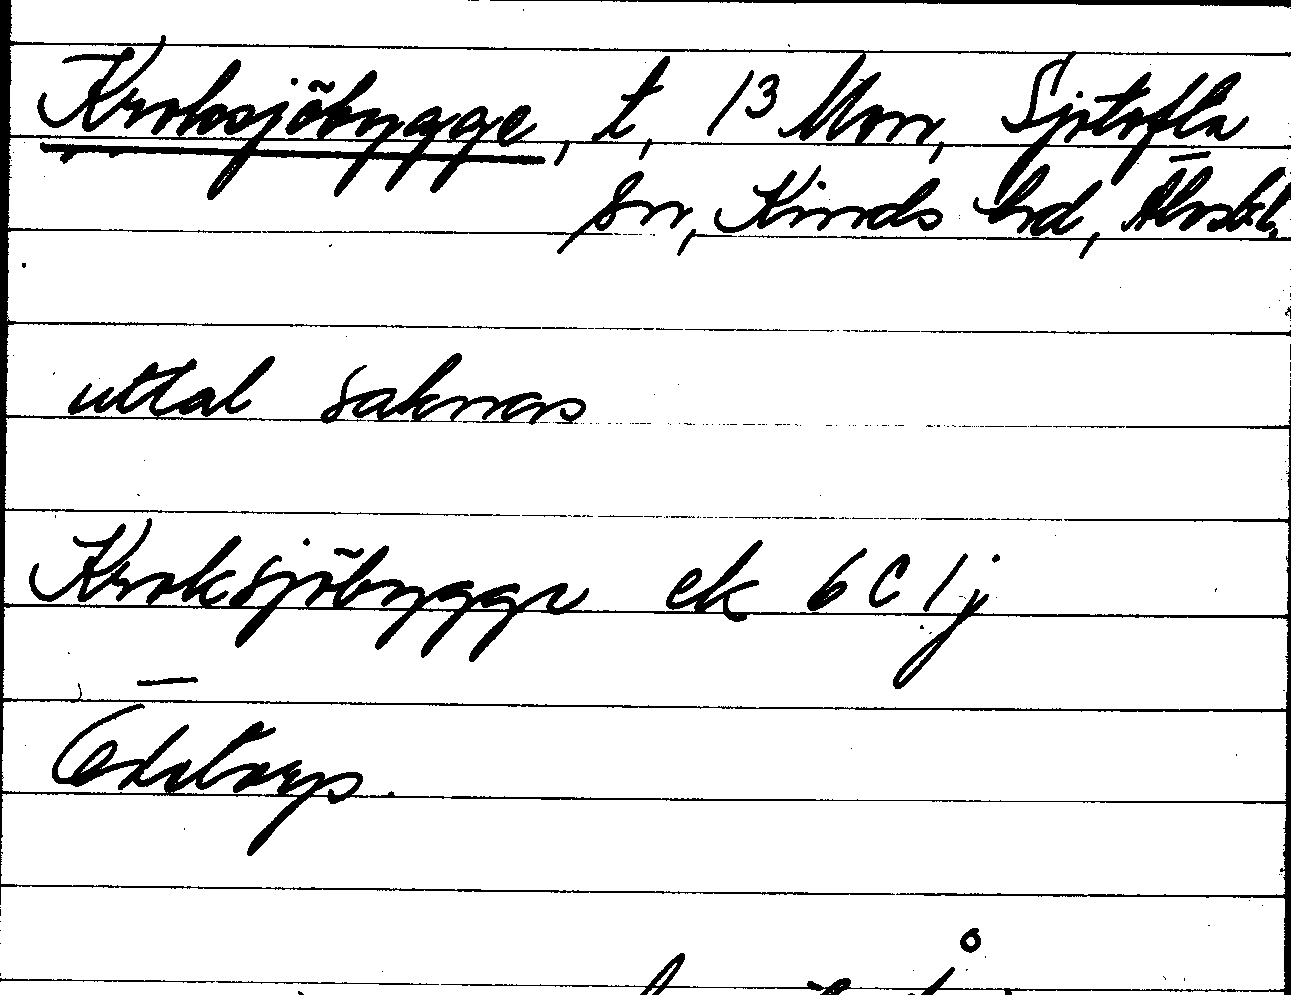 Kroksjöbygge, t, 13 Mon, Sjötofta
sn, Kinds hd, Älvsb.l.
uttal saknas
Kroksjöbygge ek 6 C 1 j
Ödetorp.